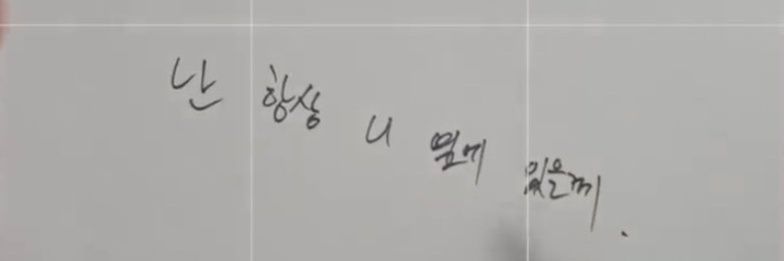 난 항상 니 옆에 있을께.